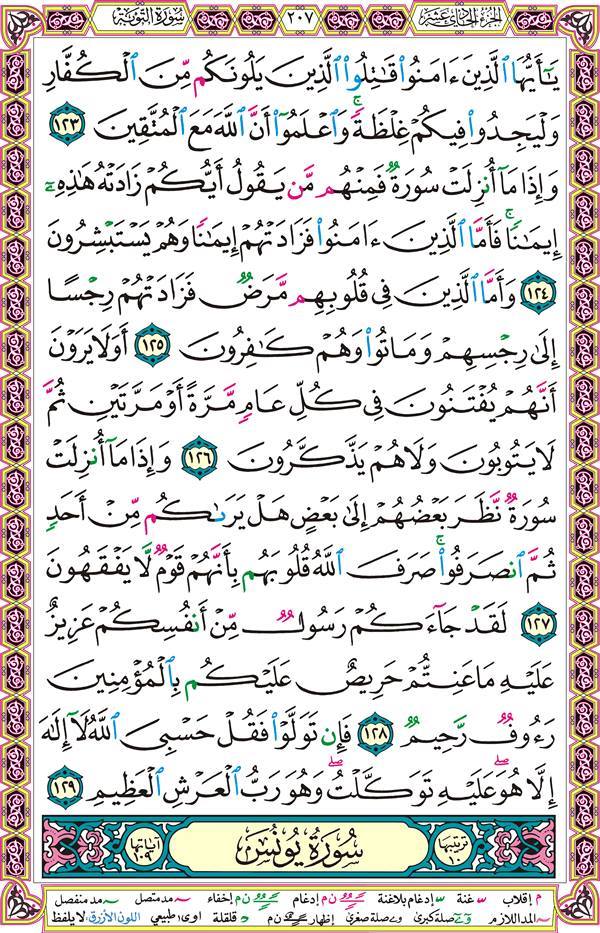 الجزء الحادي عشر
٢٠٧
سورة التوبة
يَـٰٓأَيُّهَا ٱلَّذِينَ ءَامَنُوا۟ قَـٰتِلُوا۟ ٱلَّذِينَ يَلُونَكُم مِّنَ ٱلْكُفَّارِ
وَلْيَجِدُوا۟ فِيكُمْ غِلْظَةً ۚ وَٱعْلَمُوٓا۟ أَنَّ ٱللَّهَ مَعَ ٱلْمُتَّقِينَ ١٢٣
وَإِذَا مَآ أُنزِلَتْ سُورَةٌ فَمِنْهُم مَّن يَقُولُ أَيُّكُمْ زَادَتْهُ هَـٰذِهِۦٓ
إِيمَـٰنًا ۚ فَأَمَّا ٱلَّذِينَ ءَامَنُوا۟ فَزَادَتْهُمْ إِيمَـٰنًا وَهُمْ يَسْتَبْشِرُونَ
١٢٤ وَأَمَّا ٱلَّذِينَ فِى قُلُوبِهِم مَّرَضٌ فَزَادَتْهُمْ رِجْسًا
إِلَىٰ رِجْسِهِمْ وَمَاتُوا۟ وَهُمْ كَـٰفِرُونَ ١٢٥ أَوَلَا يَرَوْنَ
أَنَّهُمْ يُفْتَنُونَ فِى كُلِّ عَامٍ مَّرَّةً أَوْ مَرَّتَيْنِ ثُمَّ
لَا يَتُوبُونَ وَلَا هُمْ يَذَّكَّرُونَ ١٢٦ وَإِذَا مَآ أُنزِلَتْ
سُورَةٌ نَّظَرَ بَعْضُهُمْ إِلَىٰ بَعْضٍ هَلْ يَرَىٰكُم مِّنْ أَحَدٍ
ثُمَّ ٱنصَرَفُوا۟ ۚ صَرَفَ ٱللَّهُ قُلُوبَهُم بِأَنَّهُمْ قَوْمٌ لَّا يَفْقَهُونَ
١٢٧ لَقَدْ جَآءَكُمْ رَسُولٌ مِّنْ أَنفُسِكُمْ عَزِيزٌ
عَلَيْهِ مَا عَنِتُّمْ حَرِيصٌ عَلَيْكُم بِٱلْمُؤْمِنِينَ
رَءُوفٌ رَّحِيمٌ ١٢٨ فَإِن تَوَلَّوْا۟ فَقُلْ حَسْبِىَ ٱللَّهُ لَآ إِلَـٰهَ
إِلَّا هُوَ ۖ عَلَيْهِ تَوَكَّلْتُ ۖ وَهُوَ رَبُّ ٱلْعَرْشِ ٱلْعَظِيمِ ١٢٩
ترتيبها ١٠
سورة يونس
آياتها ١٠٩
م إقلاب س غنة إدغام بلاغنة ن م إدغام ن م إخفاء مد متصل مد منفصل
المد اللازم صلة كبرى صلة صغرى إظهار ن م قلقلة اوى طبيعي اللون الأزرق: لا يلفظ